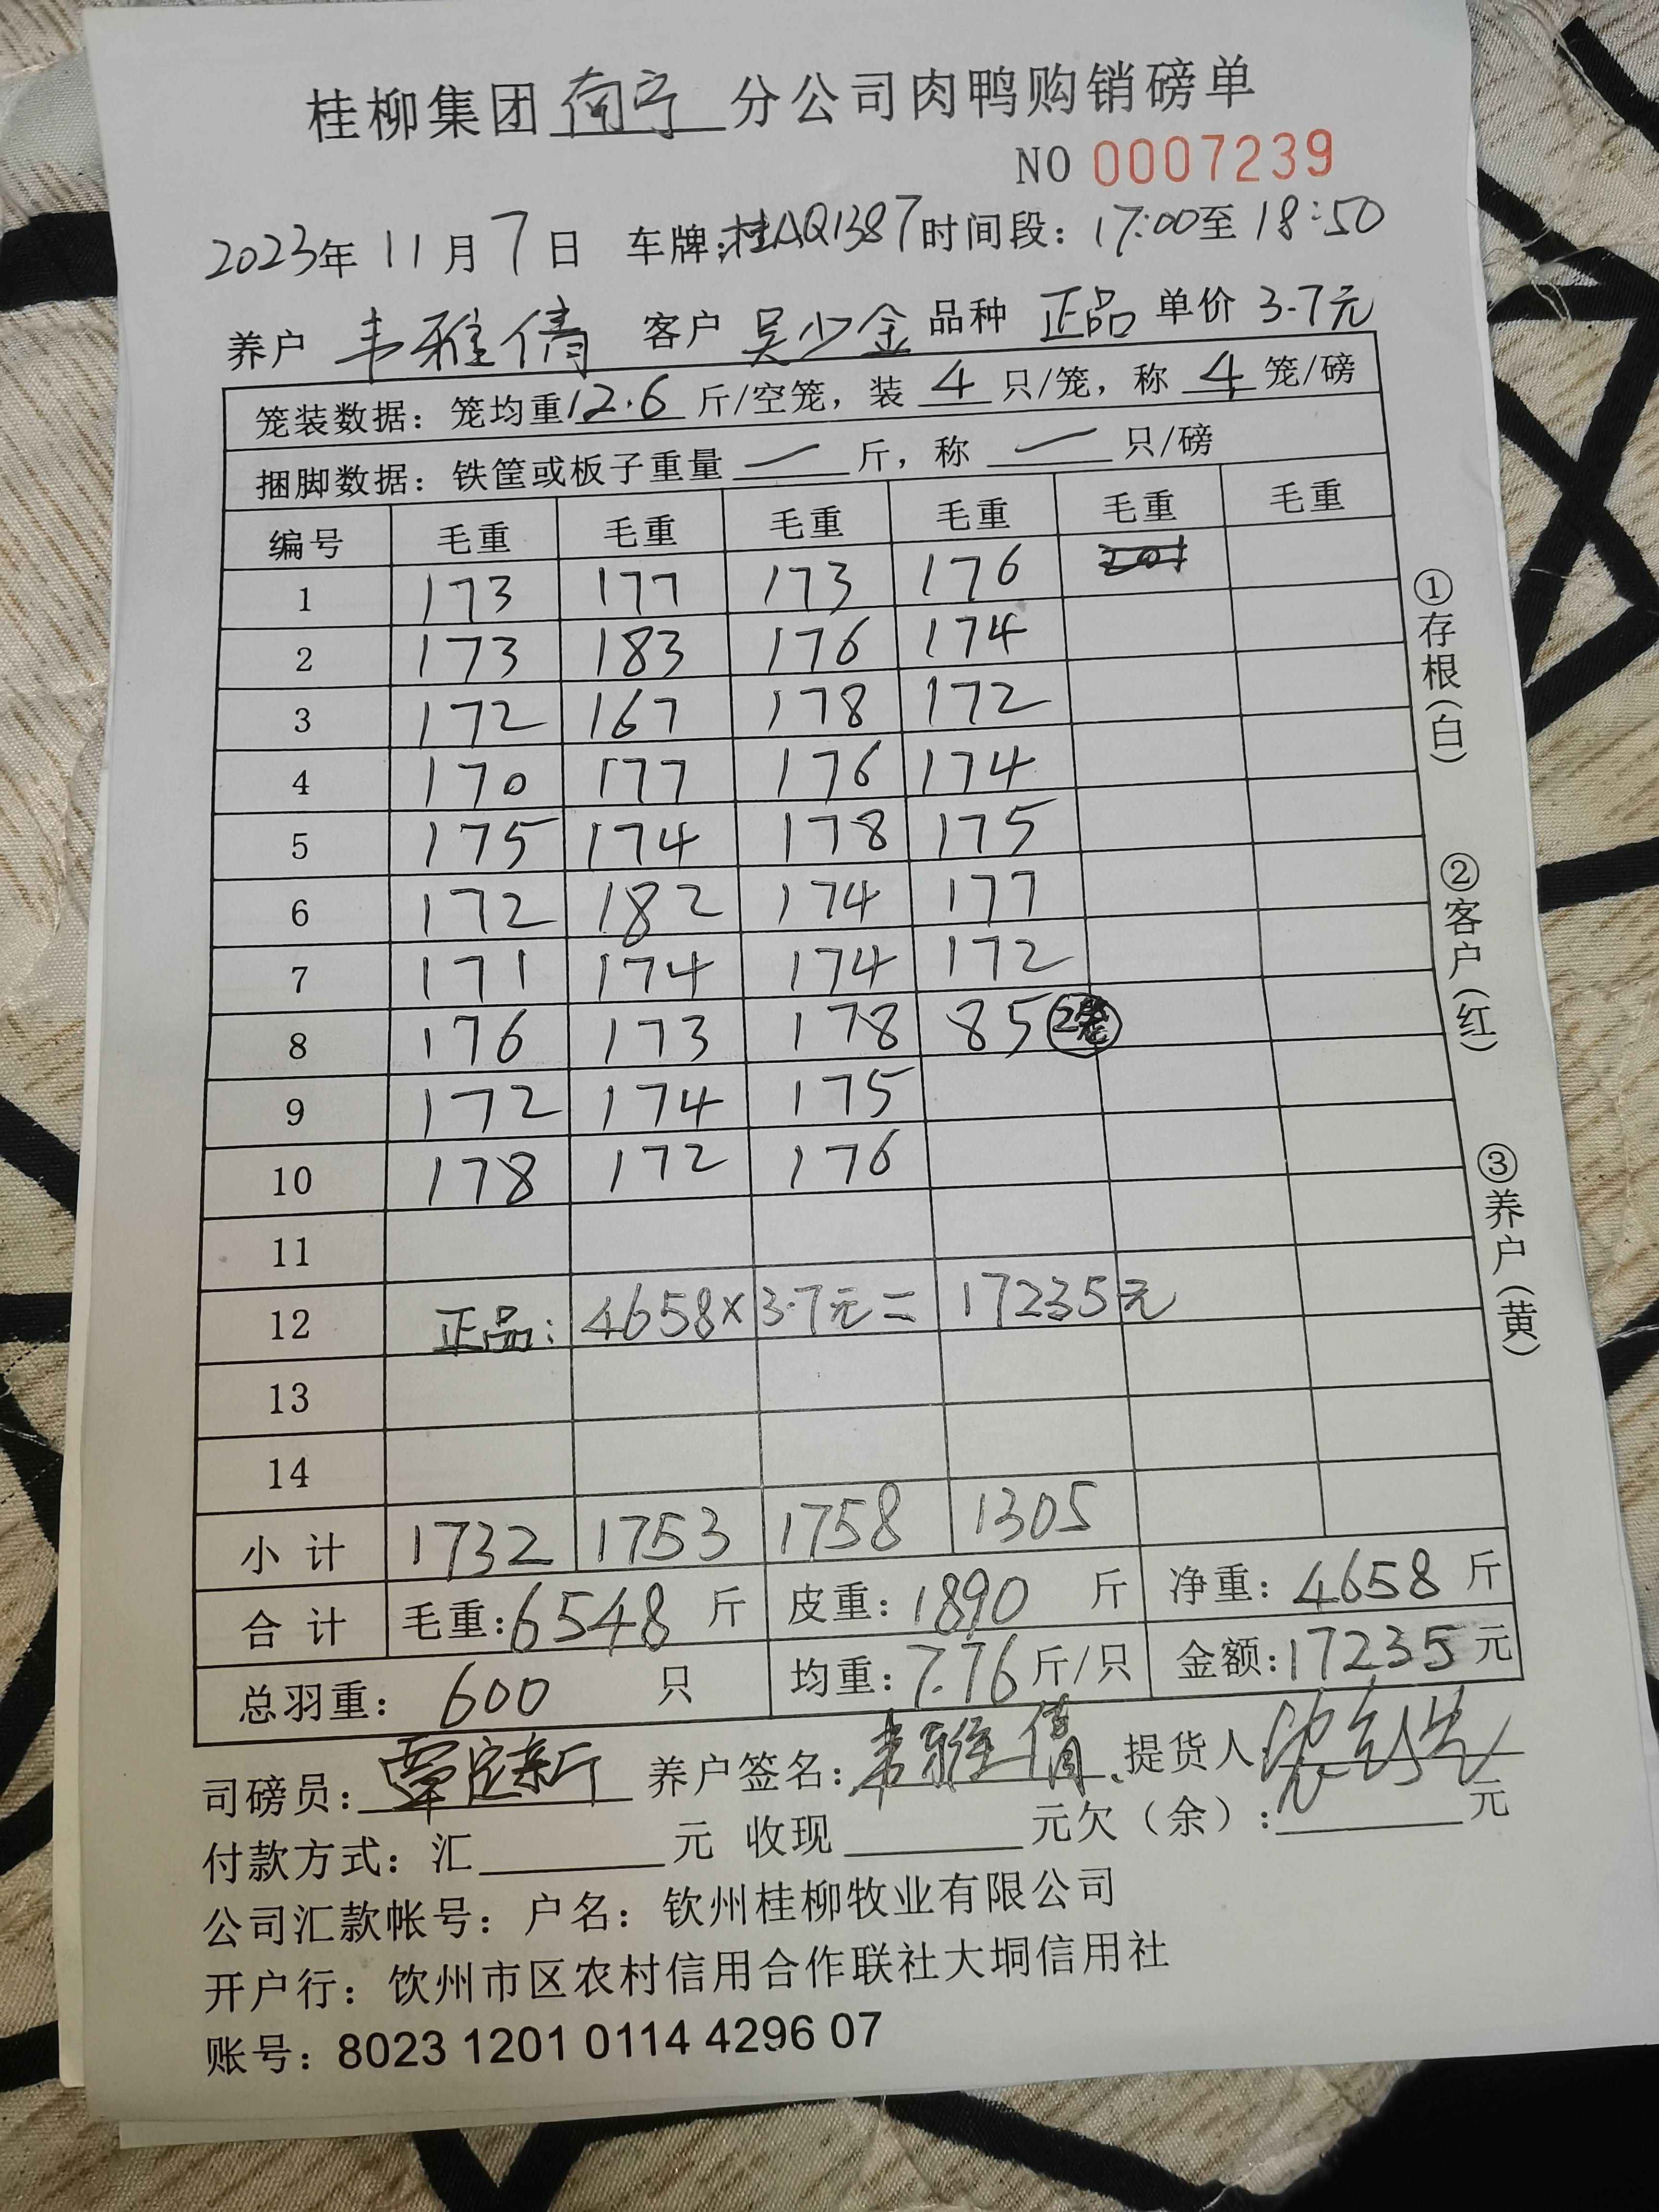 桂柳集团南宁分公司肉鸭购销磅单
NO 0007239
2023年 11月 7日 车牌:桂AQ1387 时间段: 17:00至 18:50
养户 韦雅倩 客户 吴少金 品种 正品 单价 3.7元
笼装数据: 笼均重12.6斤/空笼, 装 4 只/笼, 称 4 笼/磅
捆脚数据: 铁筐或板子重量 — 斤, 称 — 只/磅
编号 毛重 毛重 毛重 毛重 毛重 毛重
1 173 177 173 176
2 173 183 176 174
3 172 167 178 172
4 170 177 176 174
5 175 174 178 175
6 172 182 174 177
7 171 174 174 172
8 176 173 178 85 2笼
9 172 174 175
10 178 172 176
11
12 正品: 4658×3.7元= 17235元
13
14
小计 1732 1753 1758 1305
合计 毛重:6548 斤 皮重:1890 斤 净重:4658 斤
总羽重: 600 只 均重:7.76斤/只 金额:17235元
司磅员: 覃定新 养户签名: 韦雅倩 提货人:
付款方式: 汇 元 收现 元欠(余): 元
公司汇款帐号: 户名: 钦州桂柳牧业有限公司
开户行: 钦州市区农村信用合作联社大垌信用社
账号: 8023 1201 0114 4296 07
①存根(白)
②客户(红)
③养户(黄)